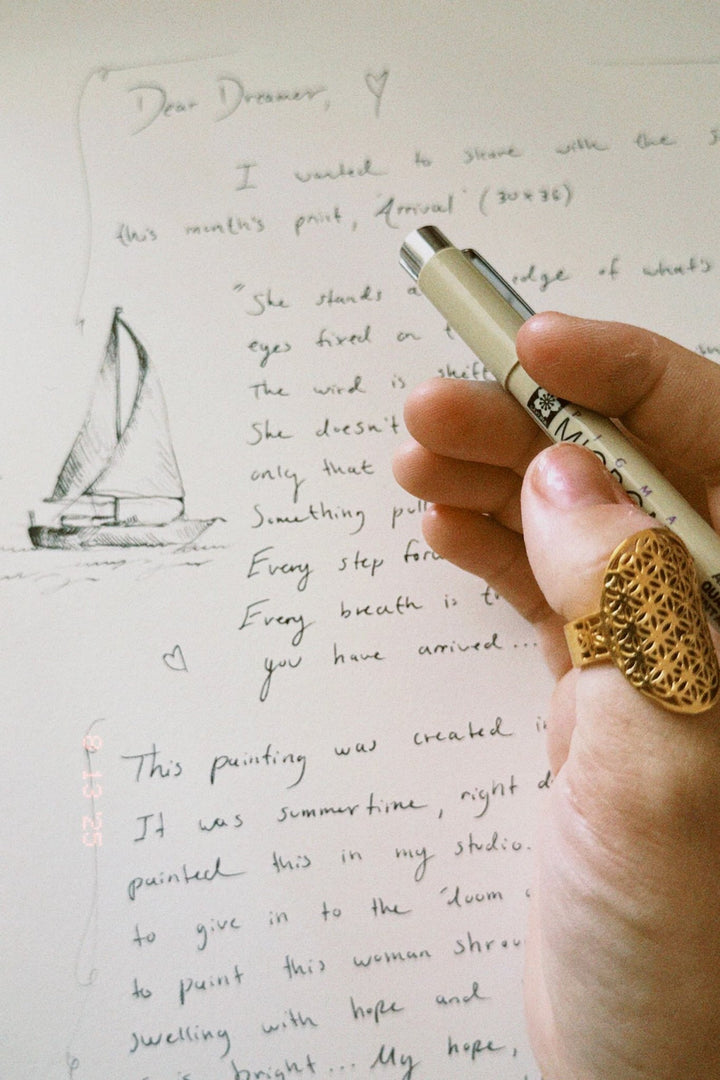 Dear Dreamer,
I wanted to share with the
this month's print, 'Arrival' (30x36)
"She stands a edge of what's
eyes fixed on
The wind is shift
She doesn't
only that
Something pull
Every step forw
Every breath is
you have arrived...
This painting was created in
It was summertime, right d
painted this in my studio.
to give in to the "doom
to paint this woman shrou
swelling with hope and
is bright... My hope,
PIGMA
MICRON
8 13 25